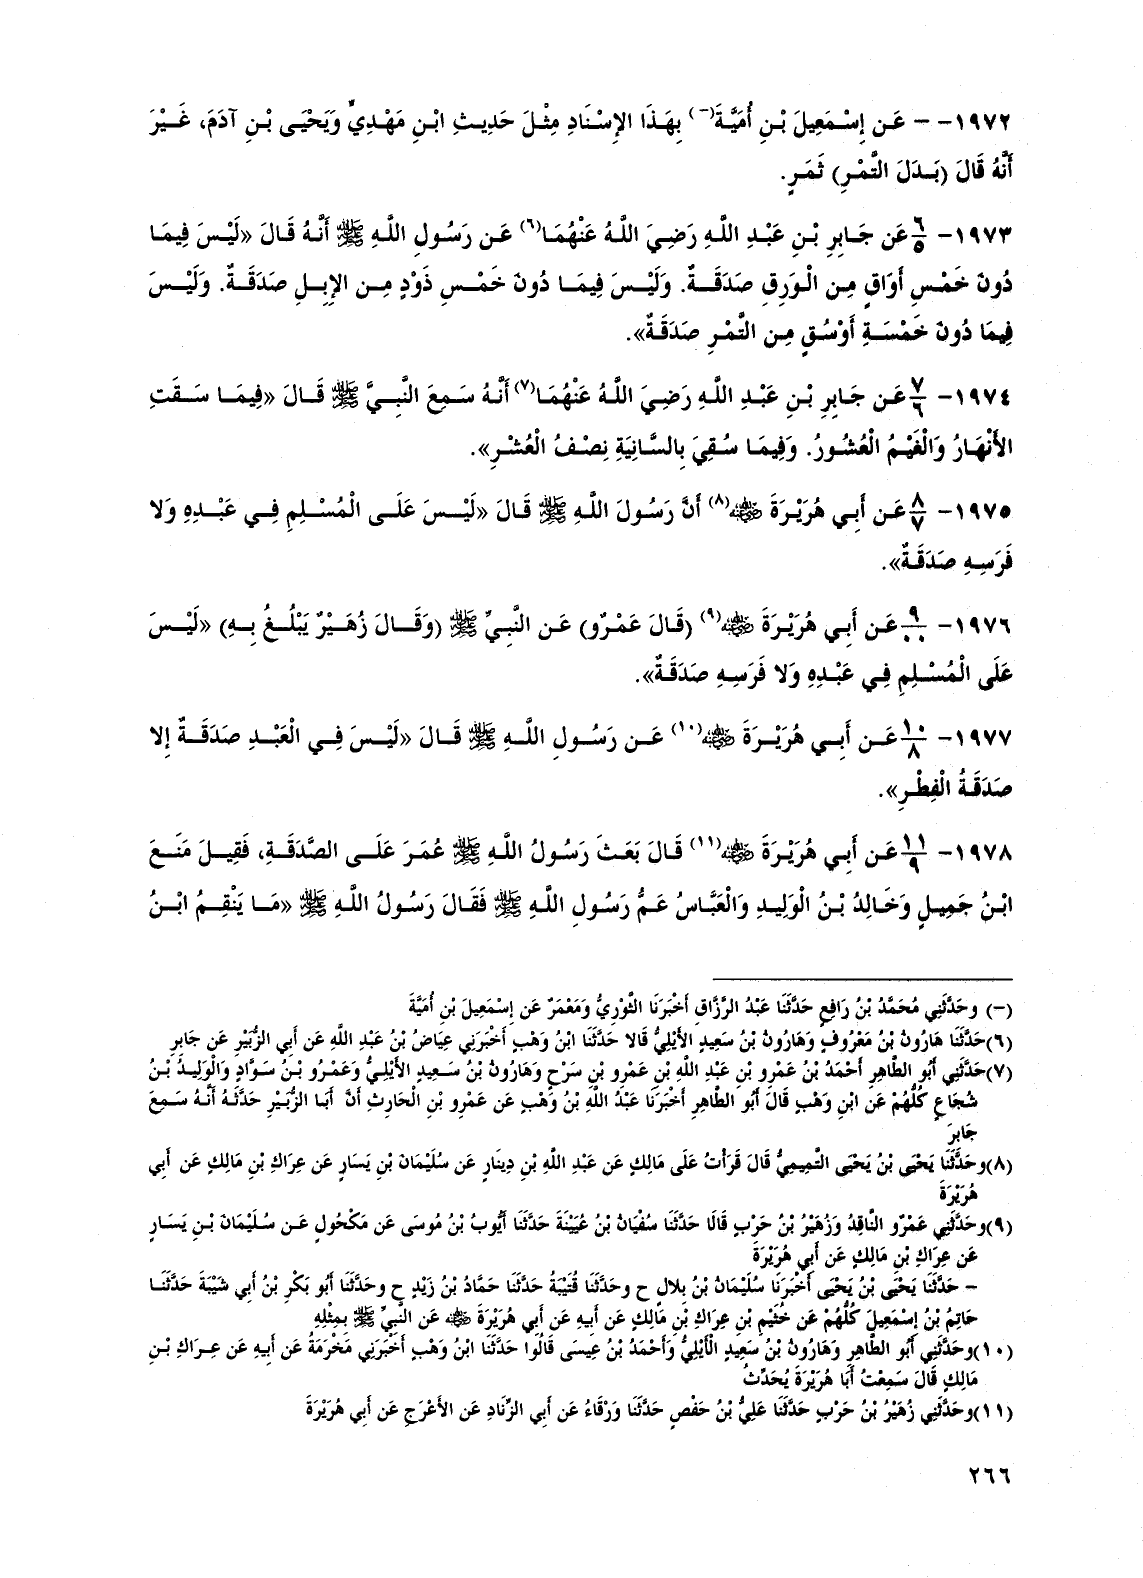 ١٩٧٢- – عَن إِسْمَعِيلَ بْنِ أُمَيَّةَ(-) بِهَذَا الإِسْنَادِ مِثْلَ حَدِيثِ ابْنِ مَهْدِيٍّ وَيَحْيَى بْنِ آدَمَ، غَيْرَ
أَنَّهُ قَالَ (بَدَلَ التَّمْرِ) ثَمَرٍ.
١٩٧٣- ٦/٥ عَن جَابِرِ بْنِ عَبْدِ اللَّهِ رَضِيَ اللَّهُ عَنْهُمَا(٦) عَن رَسُولِ اللَّهِ ﷺ أَنَّهُ قَالَ «لَيْسَ فِيمَا
دُونَ خَمْسِ أَوَاقٍ مِن الْوَرِقِ صَدَقَةٌ. وَلَيْسَ فِيمَا دُونَ خَمْسِ ذَوْدٍ مِن الإِبِلِ صَدَقَةٌ. وَلَيْسَ
فِيمَا دُونَ خَمْسَةِ أَوْسُقٍ مِن التَّمْرِ صَدَقَةٌ».
١٩٧٤- ٧/٦ عَن جَابِرِ بْنِ عَبْدِ اللَّهِ رَضِيَ اللَّهُ عَنْهُمَا(٧) أَنَّهُ سَمِعَ النَّبِيَّ ﷺ قَالَ «فِيمَا سَقَتِ
الأَنْهَارُ وَالْغَيْمُ الْعُشُورُ. وَفِيمَا سُقِيَ بِالسَّانِيَةِ نِصْفُ الْعُشْرِ».
١٩٧٥- ٨/٧ عَن أَبِي هُرَيْرَةَ ﵁(٨) أَنَّ رَسُولَ اللَّهِ ﷺ قَالَ «لَيْسَ عَلَى الْمُسْلِمِ فِي عَبْدِهِ وَلا
فَرَسِهِ صَدَقَةٌ».
١٩٧٦- ٩/.. عَن أَبِي هُرَيْرَةَ ﵁(٩) (قَالَ عَمْرٌو) عَن النَّبِيِّ ﷺ (وَقَالَ زُهَيْرٌ يَبْلُغُ بِهِ) «لَيْسَ
عَلَى الْمُسْلِمِ فِي عَبْدِهِ وَلا فَرَسِهِ صَدَقَةٌ».
١٩٧٧- ١٠/٨ عَن أَبِي هُرَيْرَةَ ﵁(١٠) عَن رَسُولِ اللَّهِ ﷺ قَالَ «لَيْسَ فِي الْعَبْدِ صَدَقَةٌ إلا
صَدَقَةُ الْفِطْرِ».
١٩٧٨- ١١/٩ عَن أَبِي هُرَيْرَةَ ﵁(١١) قَالَ بَعَثَ رَسُولُ اللَّهِ ﷺ عُمَرَ عَلَى الصَّدَقَةِ، فَقِيلَ مَنَعَ
ابْنُ جَمِيلٍ وَخَالِدُ بْنُ الْوَلِيدِ وَالْعَبَّاسُ عَمُّ رَسُولِ اللَّهِ ﷺ فَقَالَ رَسُولُ اللَّهِ ﷺ «مَا يَنْقِمُ ابْنُ
(-) وحَدَّثَنِي مُحَمَّدُ بْنُ رَافِعٍ حَدَّثَنَا عَبْدُ الرَّزَّاقِ أَخْبَرَنَا الثَّوْرِيُّ وَمَعْمَرٌ عَن إِسْمَعِيلَ بْنِ أُمَيَّةَ
(٦)حَدَّثَنَا هَارُونُ بْنُ مَعْرُوفٍ وَهَارُونُ بْنُ سَعِيدٍ الأَيْلِيُّ قَالا حَدَّثَنَا ابْنُ وَهْبٍ أَخْبَرَنِي عِيَاضُ بْنُ عَبْدِ اللَّهِ عَن أَبِي الزُّبَيْرِ عَن جَابِرِ
(٧)حَدَّثَنِي أَبُو الطَّاهِرِ أَحْمَدُ بْنُ عَمْرِو بْنِ عَبْدِ اللَّهِ بْنِ عَمْرِو بْنِ سَرْحٍ وَهَارُونُ بْنُ سَعِيدٍ الأَيْلِيُّ وَعَمْرُو بْنُ سَوَّادٍ وَالْوَلِيدُ بْنُ
شُجَاعٍ كُلُّهُمْ عَن ابْنِ وَهْبٍ قَالَ أَبُو الطَّاهِرِ أَخْبَرَنَا عَبْدُ اللَّهِ بْنُ وَهْبٍ عَن عَمْرِو بْنِ الْحَارِثِ أَنَّ أَبَا الزُّبَيْرِ حَدَّثَهُ أَنَّهُ سَمِعَ
جَابِرَ
(٨)وحَدَّثَنَا يَحْيَى بْنُ يَحْيَى التَّمِيمِيُّ قَالَ قَرَأْتُ عَلَى مَالِكٍ عَن عَبْدِ اللَّهِ بْنِ دِينَارٍ عَن سُلَيْمَانَ بْنِ يَسَارٍ عَن عِرَاكِ بْنِ مَالِكٍ عَن أَبِي
هُرَيْرَةَ
(٩)وحَدَّثَنِي عَمْرٌو النَّاقِدُ وَزُهَيْرُ بْنُ حَرْبٍ قَالَا حَدَّثَنَا سُفْيَانُ بْنُ عُيَيْنَةَ حَدَّثَنَا أَيُّوبُ بْنُ مُوسَى عَن مَكْحُولٍ عَن سُلَيْمَانَ بْنِ يَسَارٍ
عَن عِرَاكِ بْنِ مَالِكٍ عَن أَبِي هُرَيْرَةَ
– حَدَّثَنَا يَحْيَى بْنُ يَحْيَى أَخْبَرَنَا سُلَيْمَانُ بْنُ بِلالٍ ح وحَدَّثَنَا قُتَيْبَةُ حَدَّثَنَا حَمَّادُ بْنُ زَيْدٍ ح وحَدَّثَنَا أَبُو بَكْرِ بْنُ أَبِي شَيْبَةَ حَدَّثَنَا
حَاتِمُ بْنُ إِسْمَعِيلَ كُلُّهُمْ عَن خُثَيْمِ بْنِ عِرَاكِ بْنِ مَالِكٍ عَن أَبِيهِ عَن أَبِي هُرَيْرَةَ ﵁ عَن النَّبِيِّ ﷺ بِمِثْلِهِ
(١٠)وحَدَّثَنِي أَبُو الطَّاهِرِ وَهَارُونُ بْنُ سَعِيدٍ الْأَيْلِيُّ وَأَحْمَدُ بْنُ عِيسَى قَالُوا حَدَّثَنَا ابْنُ وَهْبٍ أَخْبَرَنِي مَخْرَمَةُ عَن أَبِيهِ عَن عِرَاكِ بْنِ
مَالِكٍ قَالَ سَمِعْتُ أَبَا هُرَيْرَةَ يُحَدِّثُ
(١١)وحَدَّثَنِي زُهَيْرُ بْنُ حَرْبٍ حَدَّثَنَا عَلِيُّ بْنُ حَفْصٍ حَدَّثَنَا وَرْقَاءُ عَن أَبِي الزِّنَادِ عَن الأَعْرَجِ عَن أَبِي هُرَيْرَةَ
٢٦٦